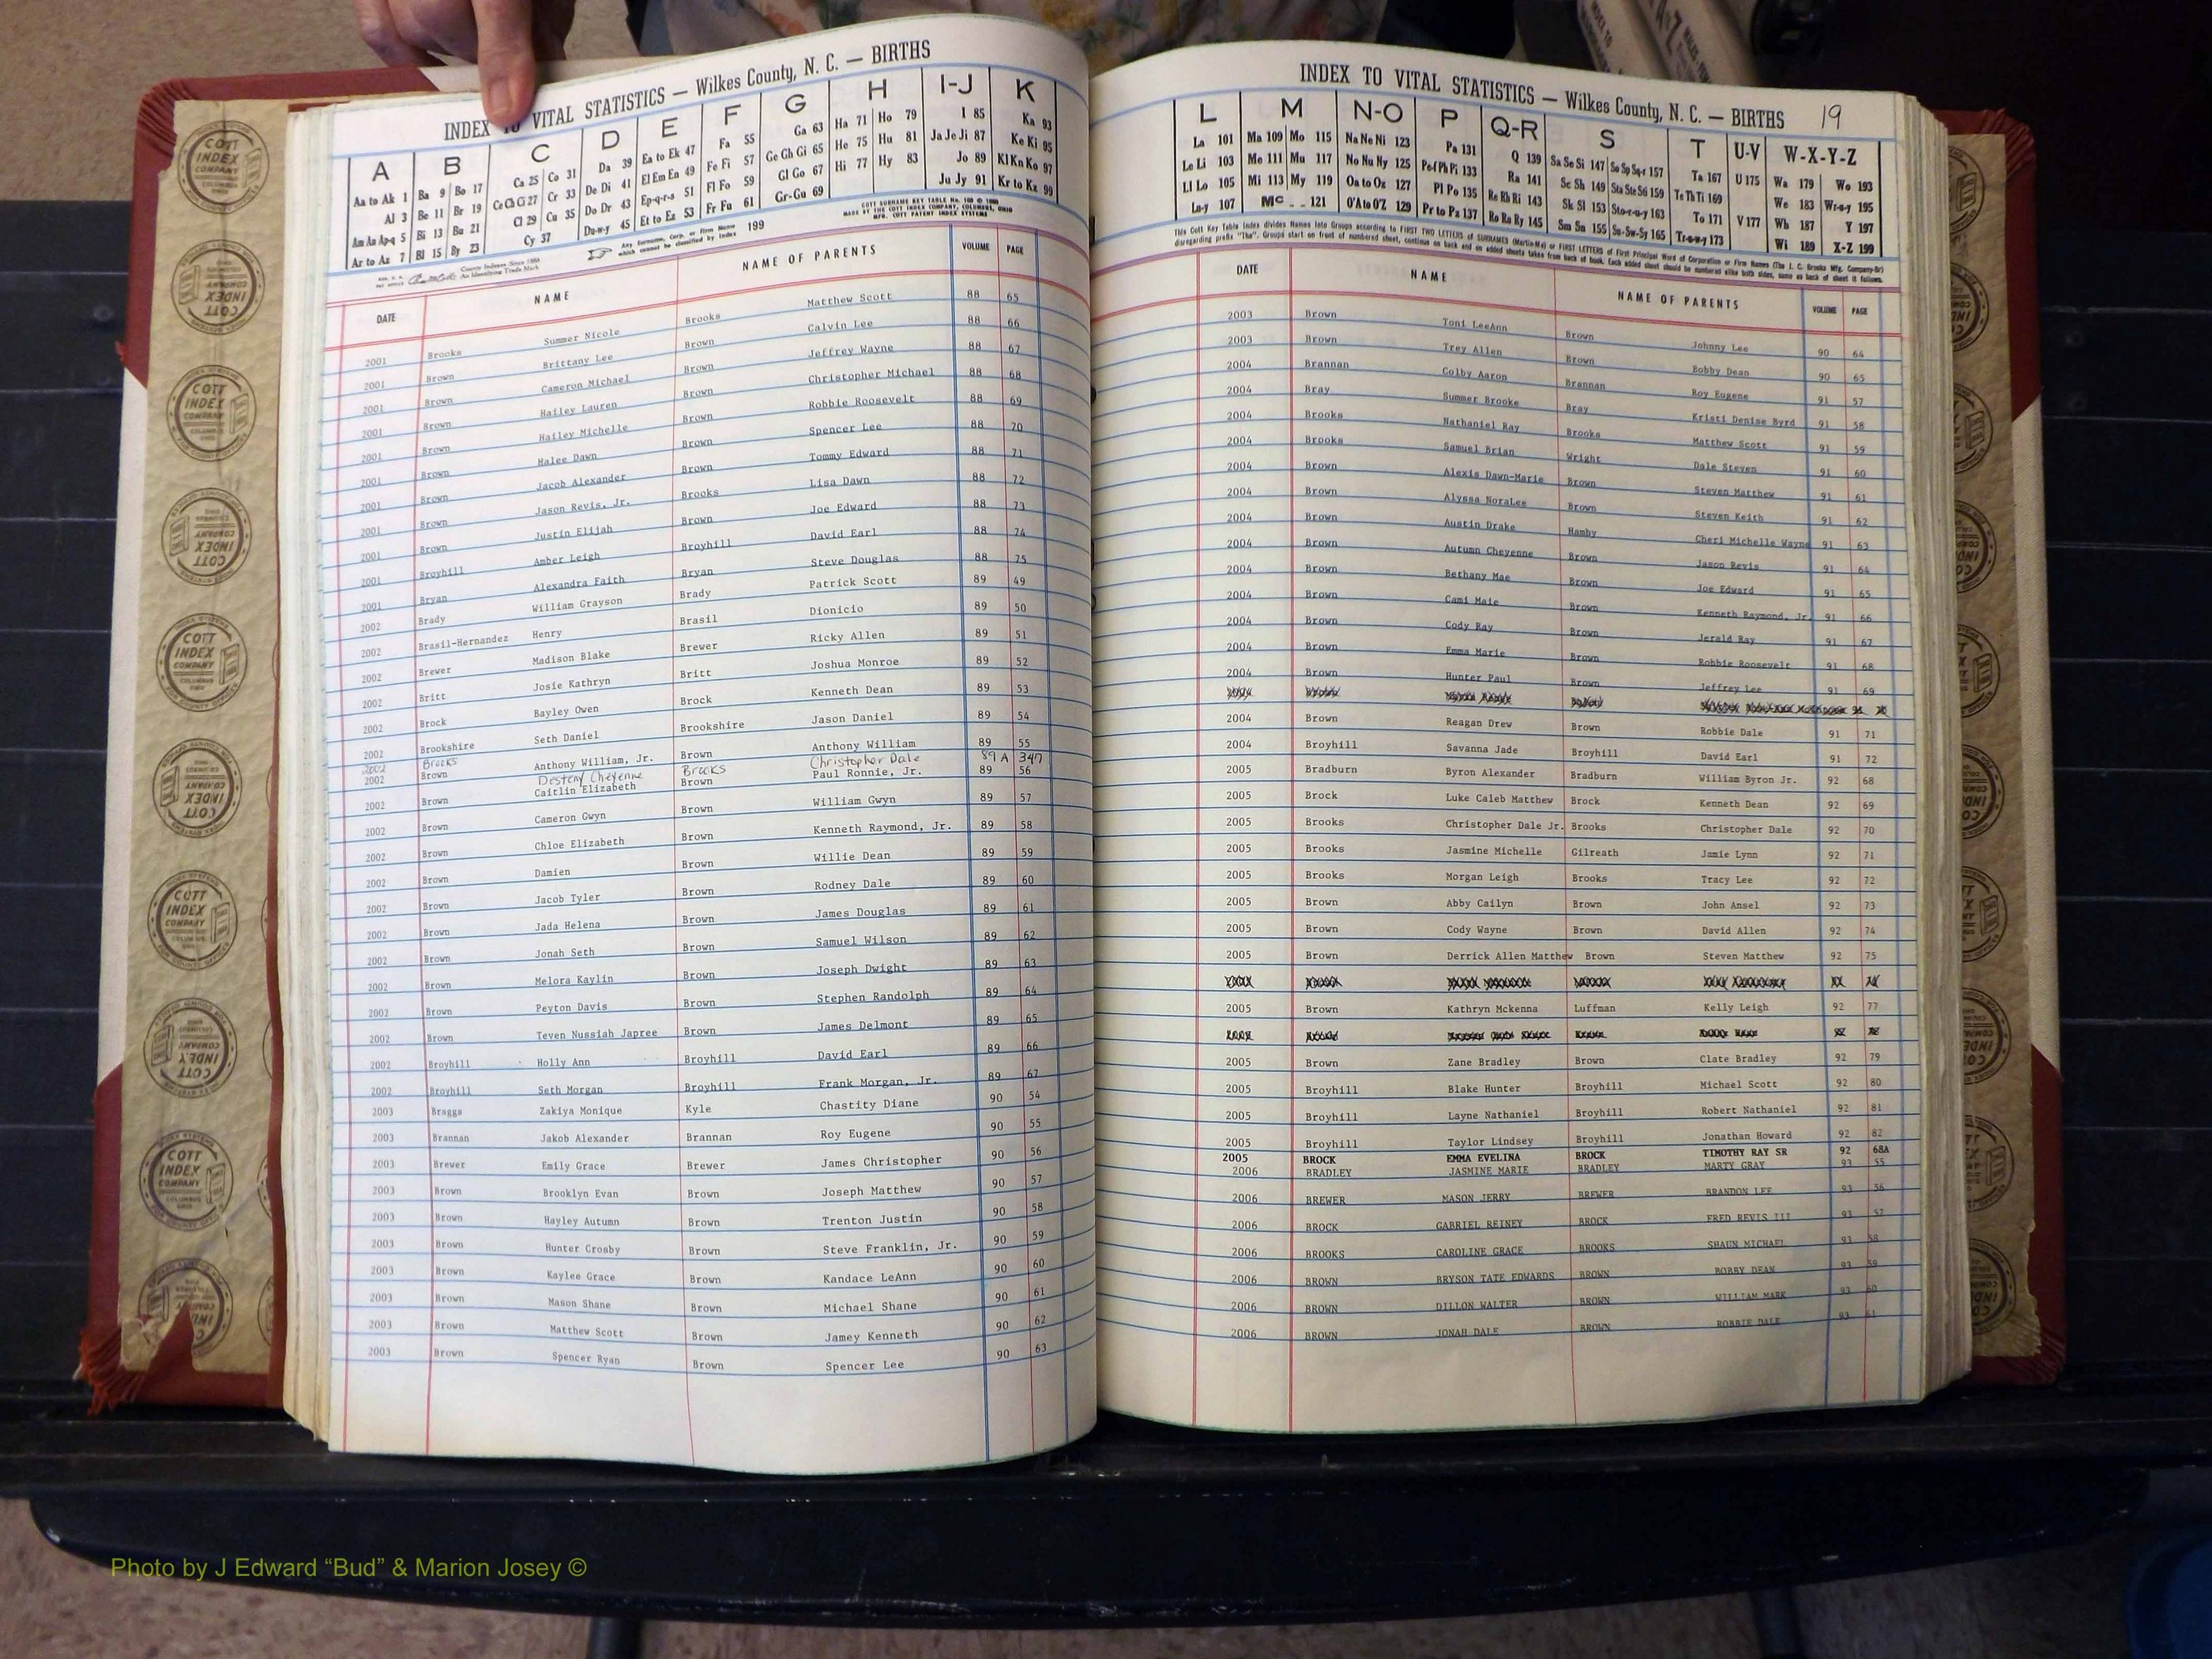 INDEX TO VITAL STATISTICS — Wilkes County, N. C. — BIRTHS
A B C D E F G H I-J K
Aa to Ak 1 Ba 9 Bo 17 Ca 25 Co 31 Da 39 Ea to Ek 47 Fa 55 Ga 63 Ha 71 Ho 79 I 85 Ka 93
Al 3 Be 11 Br 19 Ce Ch Ci 27 Cr 33 De Di 41 El Em En 49 Fe Fi 57 Ge Gh Gi 65 He 75 Hu 81 Ja Je Ji 87 Ke Ki 95
Am An Ap-q 5 Bi 13 Bu 21 Cl 29 Cu 35 Do Dr 43 Ep-q-r-s 51 Fl Fo 59 Gl Go 67 Hi 77 Hy 83 Jo 89 Kl Kn Ko 97
Ar to Az 7 Bl 15 By 23 Cy 37 Du-w-y 45 Et to Ez 53 Fr Fu 61 Gr-Gu 69 Ju Jy 91 Kr to Kz 99
Any Surname, Corp. or Firm Name which cannot be classified by Index 199
COTT SURNAME KEY TABLE
MADE BY THE COTT INDEX COMPANY, COLUMBUS, OHIO
MFG. COTT PATENT INDEX SYSTEMS
County Indexes Since 1888
An Identifying Trade Mark
DATE NAME NAME OF PARENTS VOLUME PAGE
2001 Brooks Summer Nicole Brooks Matthew Scott 88 65
2001 Brown Brittany Lee Brown Calvin Lee 88 66
2001 Brown Cameron Michael Brown Jeffrey Wayne 88 67
2001 Brown Hailey Lauren Brown Christopher Michael 88 68
2001 Brown Hailey Michelle Brown Robbie Roosevelt 88 69
2001 Brown Halee Dawn Brown Spencer Lee 88 70
2001 Brown Jacob Alexander Brown Tommy Edward 88 71
2001 Brown Jason Revis, Jr. Brooks Lisa Dawn 88 72
2001 Brown Justin Elijah Brown Joe Edward 88 73
2001 Broyhill Amber Leigh Broyhill David Earl 88 74
2001 Bryan Alexandra Faith Bryan Steve Douglas 88 75
2002 Brady William Grayson Brady Patrick Scott 89 49
2002 Brasil-Hernandez Henry Brasil Dionicio 89 50
2002 Brewer Madison Blake Brewer Ricky Allen 89 51
2002 Britt Josie Kathryn Britt Joshua Monroe 89 52
2002 Brock Bayley Owen Brock Kenneth Dean 89 53
2002 Brookshire Seth Daniel Brookshire Jason Daniel 89 54
2002 Brown Anthony William, Jr. Brown Anthony William 89 55
2002 Brooks Desteny Cheyenne Brooks Christopher Dale 89 A 347
2002 Brown Caitlin Elizabeth Brown Paul Ronnie, Jr. 89 56
2002 Brown Cameron Gwyn Brown William Gwyn 89 57
2002 Brown Chloe Elizabeth Brown Kenneth Raymond, Jr. 89 58
2002 Brown Damien Brown Willie Dean 89 59
2002 Brown Jacob Tyler Brown Rodney Dale 89 60
2002 Brown Jada Helena Brown James Douglas 89 61
2002 Brown Jonah Seth Brown Samuel Wilson 89 62
2002 Brown Melora Kaylin Brown Joseph Dwight 89 63
2002 Brown Peyton Davis Brown Stephen Randolph 89 64
2002 Brown Teven Nussiah Japree Brown James Delmont 89 65
2002 Broyhill Holly Ann Broyhill David Earl 89 66
2002 Broyhill Seth Morgan Broyhill Frank Morgan, Jr. 89 67
2003 Braggs Zakiya Monique Kyle Chastity Diane 90 54
2003 Brannan Jakob Alexander Brannan Roy Eugene 90 55
2003 Brewer Emily Grace Brewer James Christopher 90 56
2003 Brown Brooklyn Evan Brown Joseph Matthew 90 57
2003 Brown Hayley Autumn Brown Trenton Justin 90 58
2003 Brown Hunter Crosby Brown Steve Franklin, Jr. 90 59
2003 Brown Kaylee Grace Brown Kandace LeAnn 90 60
2003 Brown Mason Shane Brown Michael Shane 90 61
2003 Brown Matthew Scott Brown Jamey Kenneth 90 62
2003 Brown Spencer Ryan Brown Spencer Lee 90 63
INDEX TO VITAL STATISTICS — Wilkes County, N. C. — BIRTHS 19
L M N-O P Q-R S T U-V W-X-Y-Z
La 101 Ma 109 Mo 115 Na Ne Ni 123 Pa 131 Q 139 Sa Se Si 147 So Sp Sq-r 157 Ta 167 U 175 Wa 179 Wo 193
Le Li 103 Me 111 Mu 117 No Nu Ny 125 Pe-f Ph Pi 133 Ra 141 Sc Sh 149 Sta Ste Sti 159 Te Th Ti 169 We 183 Wr-u-y 195
Ll Lo 105 Mi 113 My 119 Oa to Oz 127 Pl Po 135 Re Rh Ri 143 Sk Sl 153 Sto-r-u-y 163 To 171 V 177 Wh 187 Y 197
Lu-y 107 Mc 121 O'A to O'Z 129 Pr to Pz 137 Ro Ru Ry 145 Sm Sn 155 Su-Sw-Sy 165 Tr-u-w-y 173 Wi 189 X-Z 199
This Cott Key Table Index divides Names into Groups according to FIRST TWO LETTERS of SURNAMES (Martin-Ma) or FIRST LETTERS of First Principal Word of Corporation or Firm Names (The J. C. Brooks Mfg. Company-Br)
disregarding prefix "The". Groups start on front of numbered sheet, continue on back and on added sheets taken from back of book. Each added sheet should be numbered alike both sides, same as back of sheet it follows.
DATE NAME NAME OF PARENTS VOLUME PAGE
2003 Brown Toni LeeAnn Brown Johnny Lee 90 64
2003 Brown Trey Allen Brown Bobby Dean 90 65
2004 Brannan Colby Aaron Brannan Roy Eugene 91 57
2004 Bray Summer Brooke Bray Kristi Denise Byrd 91 58
2004 Brooks Nathaniel Ray Brooks Matthew Scott 91 59
2004 Brooks Samuel Brian Wright Dale Steven 91 60
2004 Brown Alexis Dawn-Marie Brown Steven Matthew 91 61
2004 Brown Alyssa NoraLee Brown Steven Keith 91 62
2004 Brown Austin Drake Hamby Cheri Michelle Wayne 91 63
2004 Brown Autumn Cheyenne Brown Jason Revis 91 64
2004 Brown Bethany Mae Brown Joe Edward 91 65
2004 Brown Cami Maie Brown Kenneth Raymond, Jr. 91 66
2004 Brown Cody Ray Brown Jerald Ray 91 67
2004 Brown Emma Marie Brown Robbie Roosevelt 91 68
2004 Brown Hunter Paul Brown Jeffrey Lee 91 69
2004 Brown Reagan Drew Brown Robbie Dale 91 71
2004 Broyhill Savanna Jade Broyhill David Earl 91 72
2005 Bradburn Byron Alexander Bradburn William Byron Jr. 92 68
2005 Brock Luke Caleb Matthew Brock Kenneth Dean 92 69
2005 Brooks Christopher Dale Jr. Brooks Christopher Dale 92 70
2005 Brooks Jasmine Michelle Gilreath Jamie Lynn 92 71
2005 Brooks Morgan Leigh Brooks Tracy Lee 92 72
2005 Brown Abby Cailyn Brown John Ansel 92 73
2005 Brown Cody Wayne Brown David Allen 92 74
2005 Brown Derrick Allen Matthew Brown Steven Matthew 92 75
2005 Brown Kathryn Mckenna Luffman Kelly Leigh 92 77
2005 Brown Zane Bradley Brown Clate Bradley 92 79
2005 Broyhill Blake Hunter Broyhill Michael Scott 92 80
2005 Broyhill Layne Nathaniel Broyhill Robert Nathaniel 92 81
2005 Broyhill Taylor Lindsey Broyhill Jonathan Howard 92 82
2005 BROCK EMMA EVELINA BROCK TIMOTHY RAY SR 92 68A
2006 BRADLEY JASMINE MARIE BRADLEY MARTY GRAY 93 55
2006 BREWER MASON JERRY BREWER BRANDON LEE 93 56
2006 BROCK GABRIEL REINEY BROCK FRED REVIS III 93 57
2006 BROOKS CAROLINE GRACE BROOKS SHAUN MICHAEL 93 58
2006 BROWN BRYSON TATE EDWARDS BROWN BOBBY DEAN 93 59
2006 BROWN DILLON WALTER BROWN WILLIAM MARK 93 60
2006 BROWN JONAH DALE BROWN ROBBIE DALE 93 61
COTT INDEX COMPANY
Photo by J Edward “Bud” & Marion Josey ©